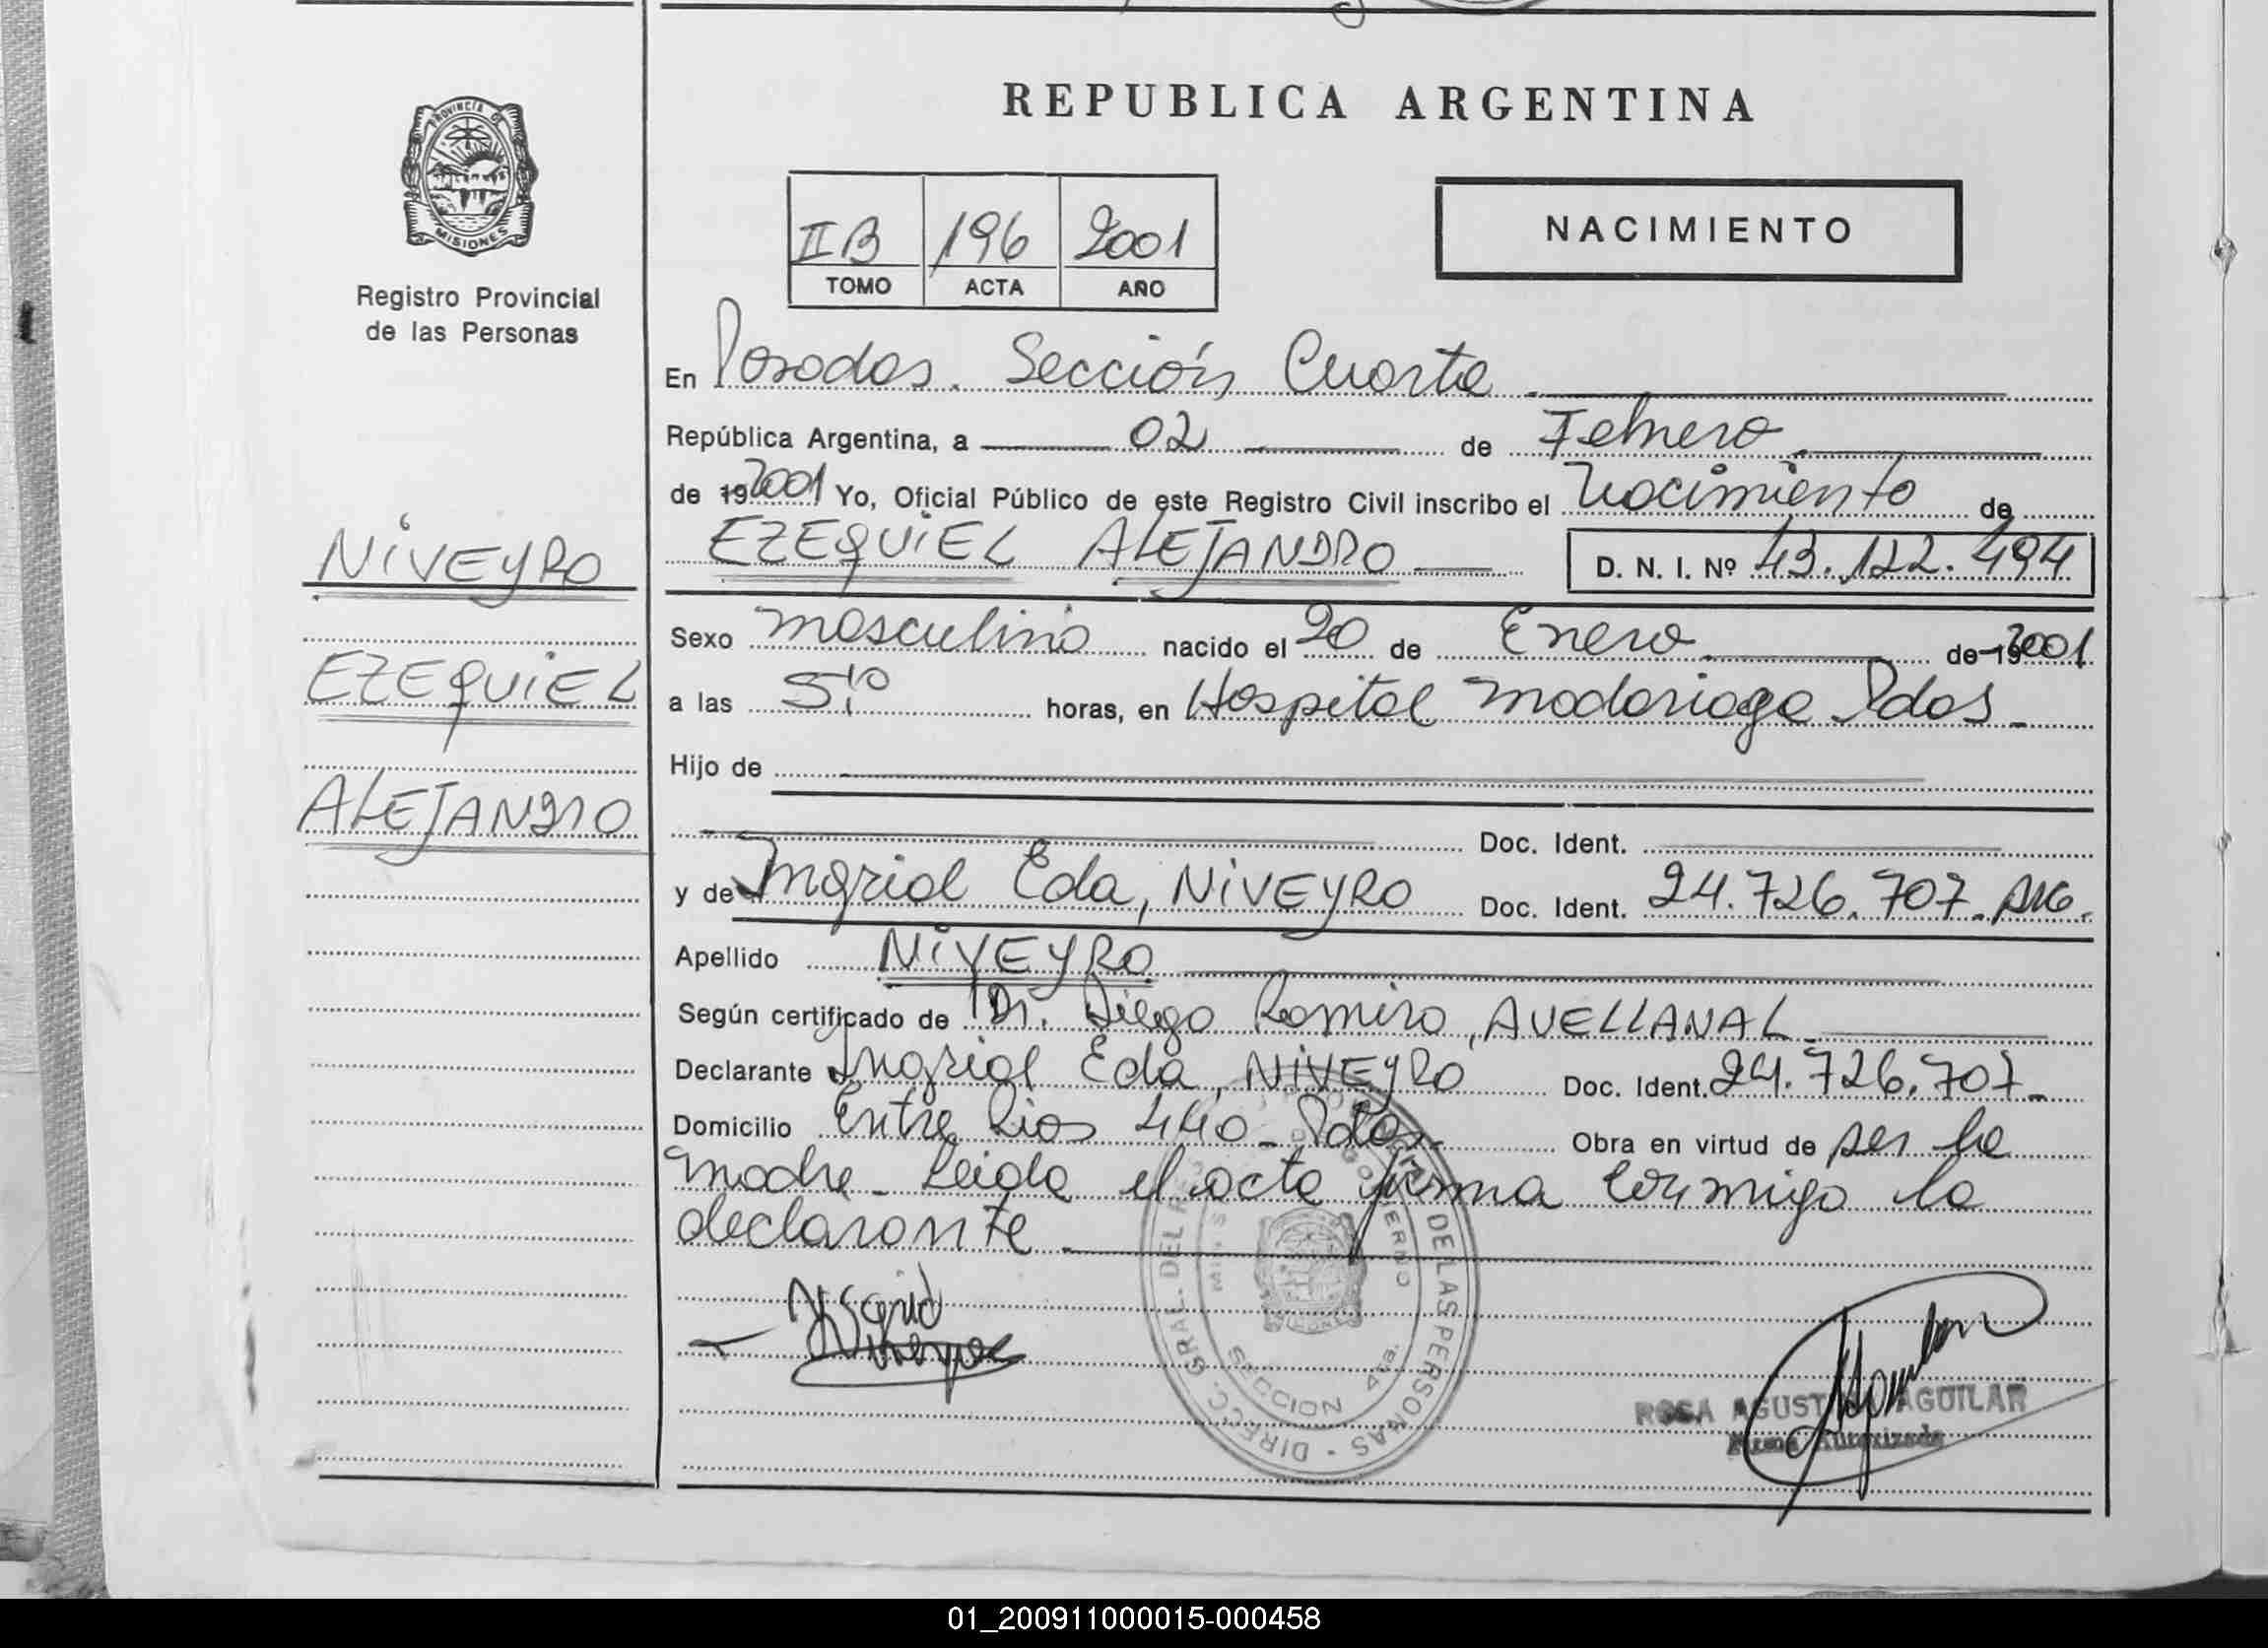 REPUBLICA ARGENTINA
PROVINCIA DE
MISIONES
Registro Provincial
de las Personas
II B 196 2001
TOMO ACTA AÑO
NACIMIENTO
En Posadas. Sección Cuarta.
República Argentina, a 02 de Febrero
de 19 2001 Yo, Oficial Público de este Registro Civil inscribo el Nacimiento de
EZEQUIEL ALEJANDRO D. N. I. Nº 43.122.494
NIVEYRO
EZEQUIEL
ALEJANDRO
Sexo masculino nacido el 20 de Enero de 19 2001
a las 5:10 horas, en Hospital Madariaga Pdas.
Hijo de
Doc. Ident.
y de Ingrid Eda, NIVEYRO Doc. Ident. 24.726.707. ARG.
Apellido NIVEYRO
Según certificado de Dr. Diego Ramiro, AVELLANAL
Declarante Ingrid Eda, NIVEYRO Doc. Ident. 24.726.707
Domicilio Entre Rios 440 - Pdas. Obra en virtud de ser la
madre - Leida el acta firma conmigo la
declarante.
Ingrid
Niveyro
DIRECC. GRAL. DEL DE LAS PERSONAS
GOBIERNO
SECCION 4ta.
ROSA AGUSTINA AGUILAR
Firma Autorizada
01_200911000015-000458